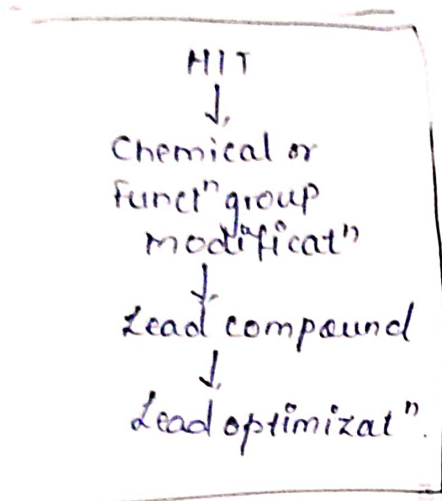 HIT
↓
Chemical or
Functⁿ group
modificatⁿ
↓
Lead compound
↓
Lead optimizatⁿ.